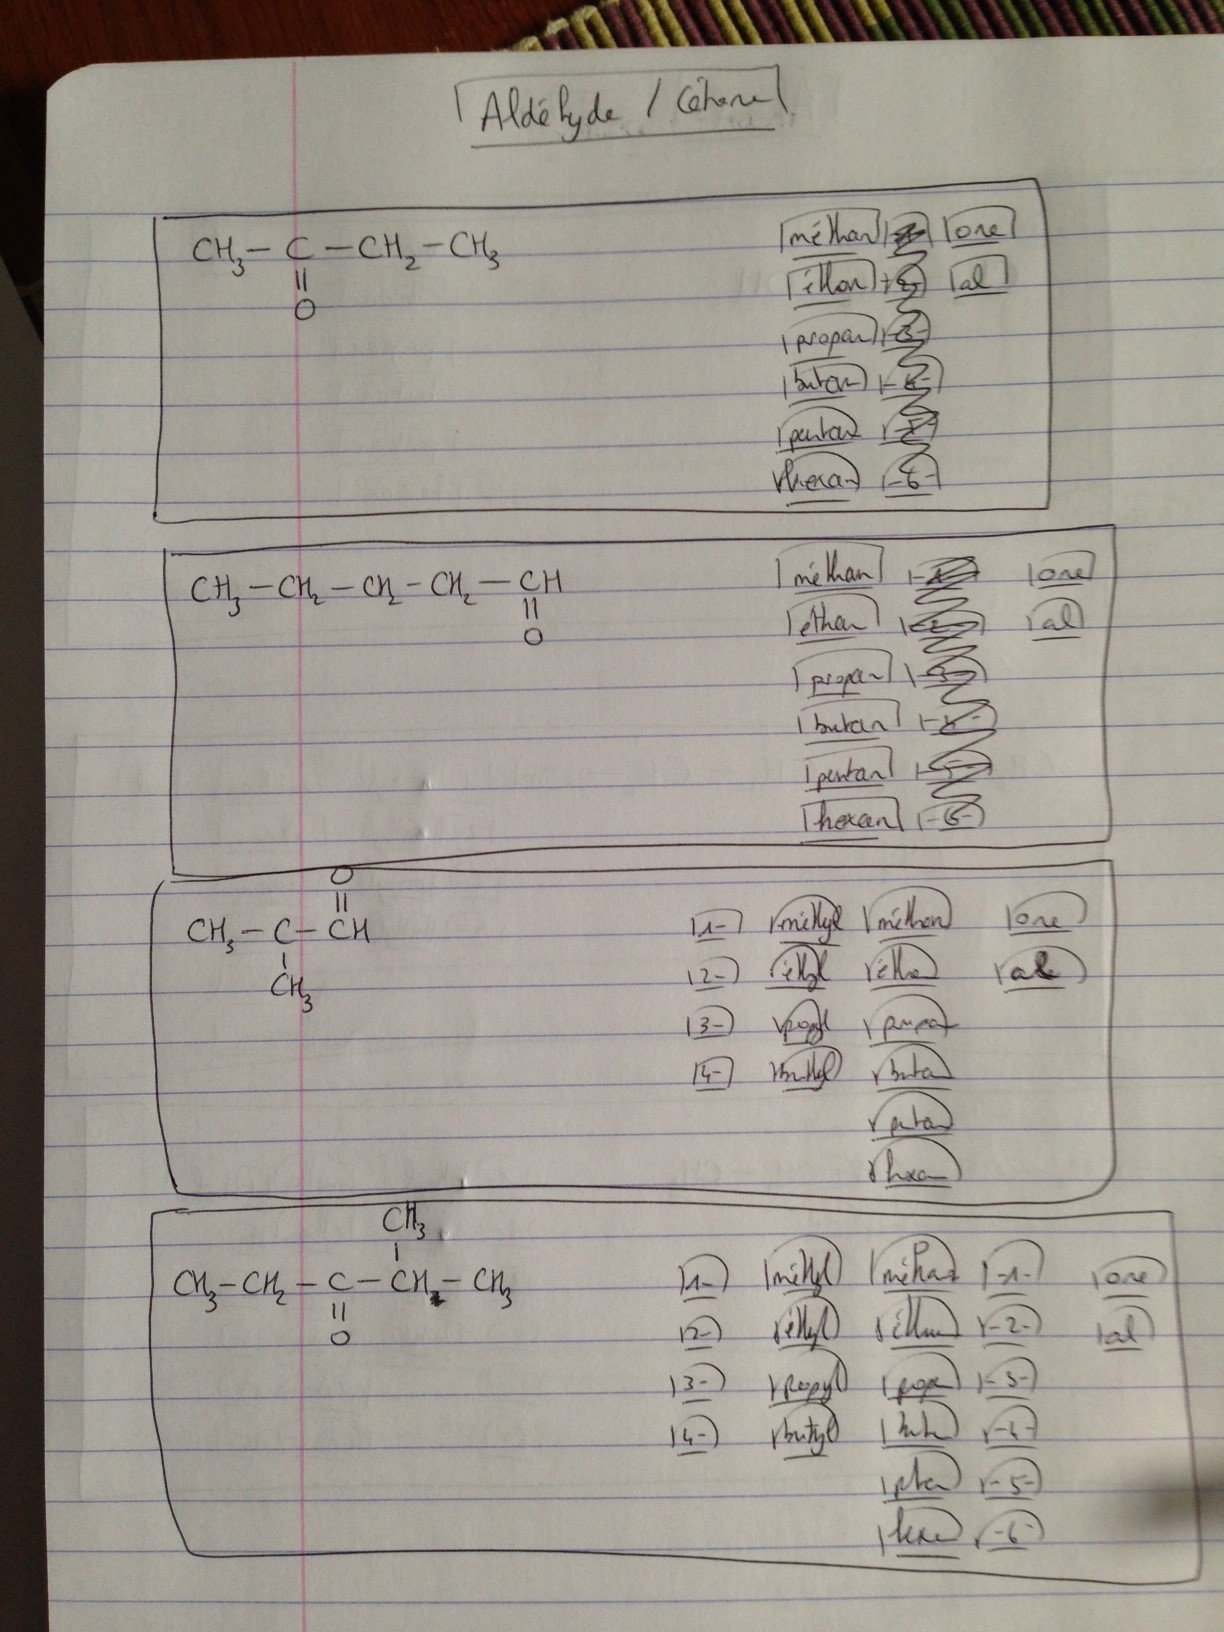 Aldéhyde / Cétone
CH3 – C – CH2 – CH3
||
O
méthan one
éthan al
propan -3-
butan
pentan
hexan -6-
CH3 – CH2 – CH2 – CH2 – CH
||
O
méthan one
éthan al
propan
butan
pentan
hexan -6-
O
||
CH3 – C – CH
CH3
1- méthyl méthan one
2- éthyl éthan al
3- propyl propan
4- buthyl butan
pentan
hexan
CH3
CH3 – CH2 – C – CH – CH3
||
O
1- méthyl méthan -1- one
2- éthyl éthan -2- al
3- propyl propan -3-
4- butyl butan -4-
pentan -5-
hexan -6-